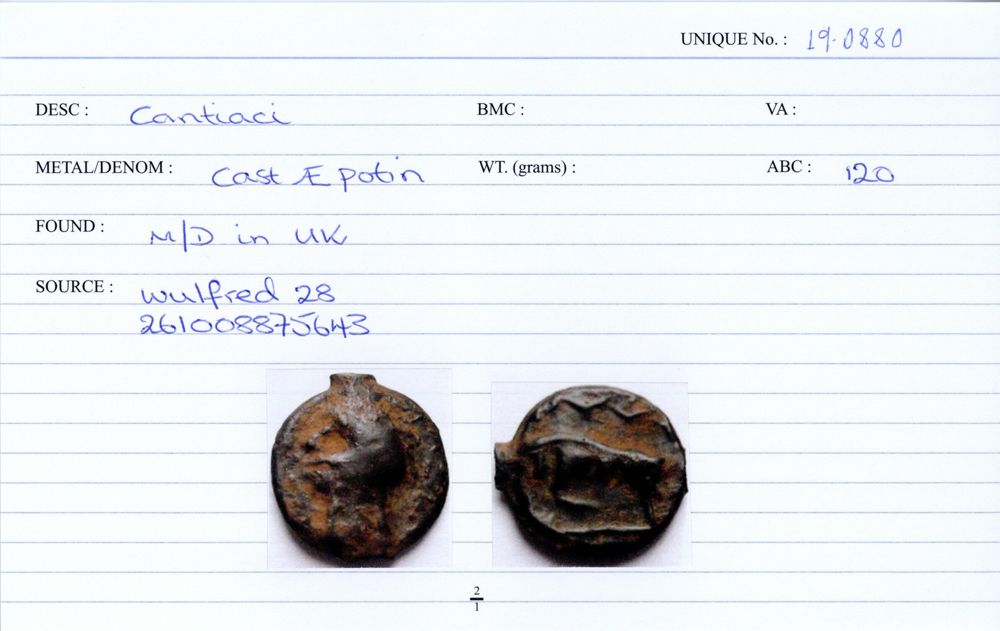 UNIQUE No. : 19.0880
DESC : Cantiaci BMC : VA :
METAL/DENOM : Cast Æ potin WT. (grams) : ABC : 120
FOUND : M/D in UK
SOURCE : wulfred 28
261008875643
2
1